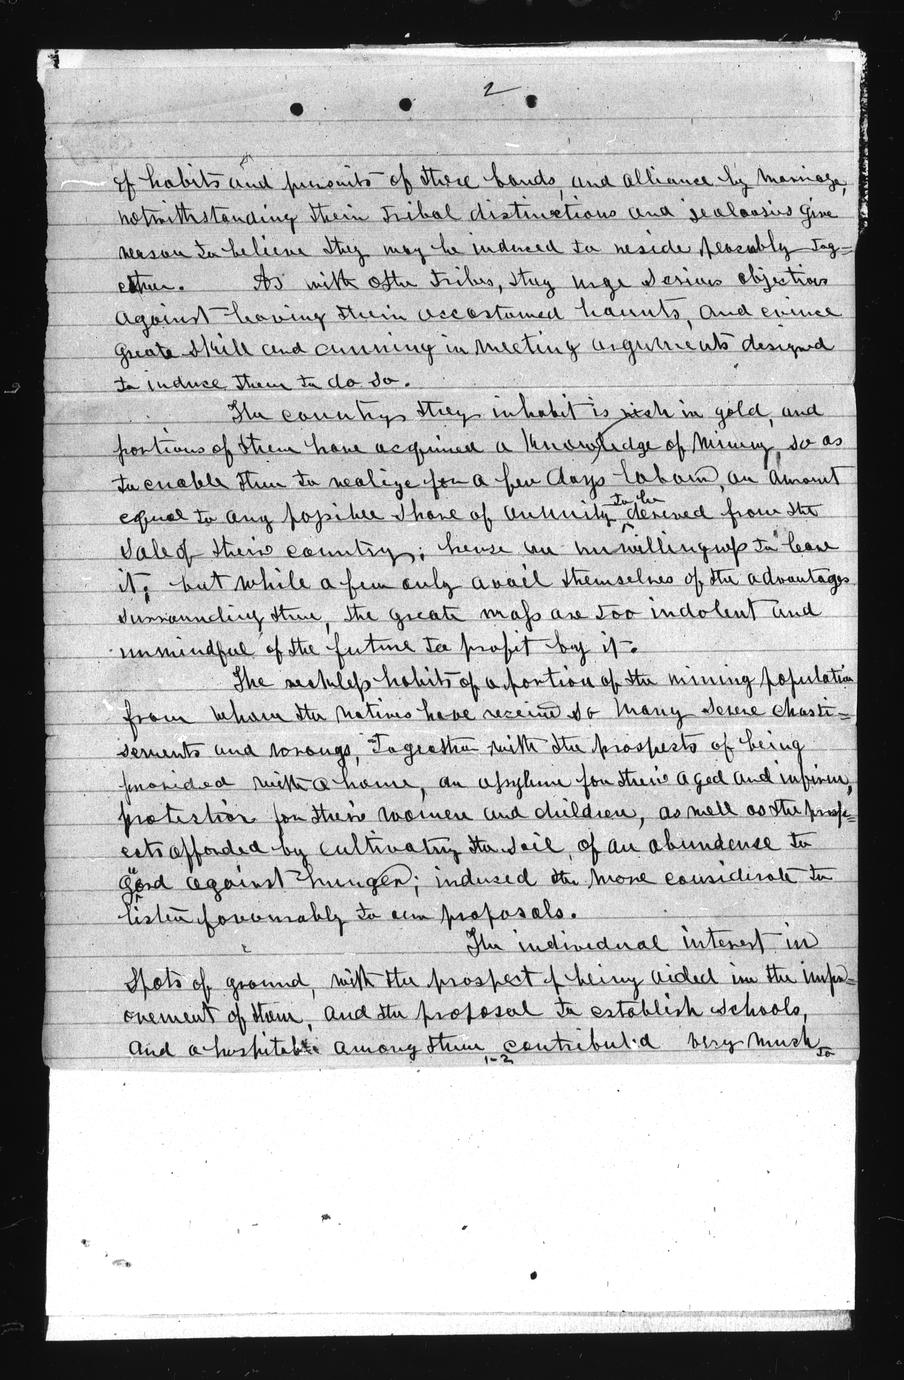 2
of habits and pursuits of these bands, and alliance by marriage,
notwithstanding their tribal distinctions and jealousies give
reason to believe they may be induced to reside peaceably tog=
ether. As with other tribes, they urge serious objections
against leaving their accustomed haunts, and evince
great skill and cunning in meeting arguments designed
to induce them to do so.
The country they inhabit is rich in gold, and
portions of them have acquired a knowledge of mining, so as
to enable them to realize for a few days labour, an amount
equal to any possible share of annuity to be derived from the
sale of their country; hence an unwillingness to leave
it; but while a few only avail themselves of the advantages
surrounding them, the great mass are too indolent and
unmindful of the future to profit by it.
The reckless habits of a portion of the mining population
from whom the natives have received so many severe chasti=
sements and wrongs, together with the prospects of being
provided with a home, an assylum for their aged and infirm,
protection for their women and children, as well as the prosp=
ects afforded by cultivating the soil, of an abundence to
guard against hunger; induced the more considerate to
listen favourably to our proposals.
The individual interest in
spots of ground, with the prospect of being aided in the impr=
ovement of them, and the proposal to establish schools,
and a hospital among them contributed very much to
1-2